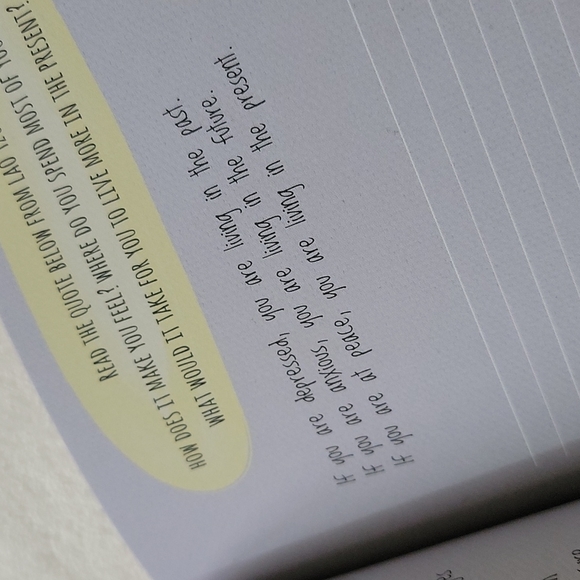 READ THE QUOTE BELOW FROM LAO
HOW DOES IT MAKE YOU FEEL? WHERE DO YOU SPEND MOST OF
WHAT WOULD IT TAKE FOR YOU TO LIVE MORE IN THE PRESENT?
If you are depressed, you are living in the past.
If you are anxious, you are living in the future.
If you are at peace, you are living in the present.